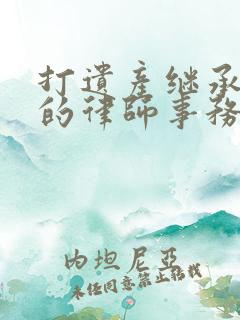 打遗产继承
的律师事务
内坦尼亚
未经同意禁止转载